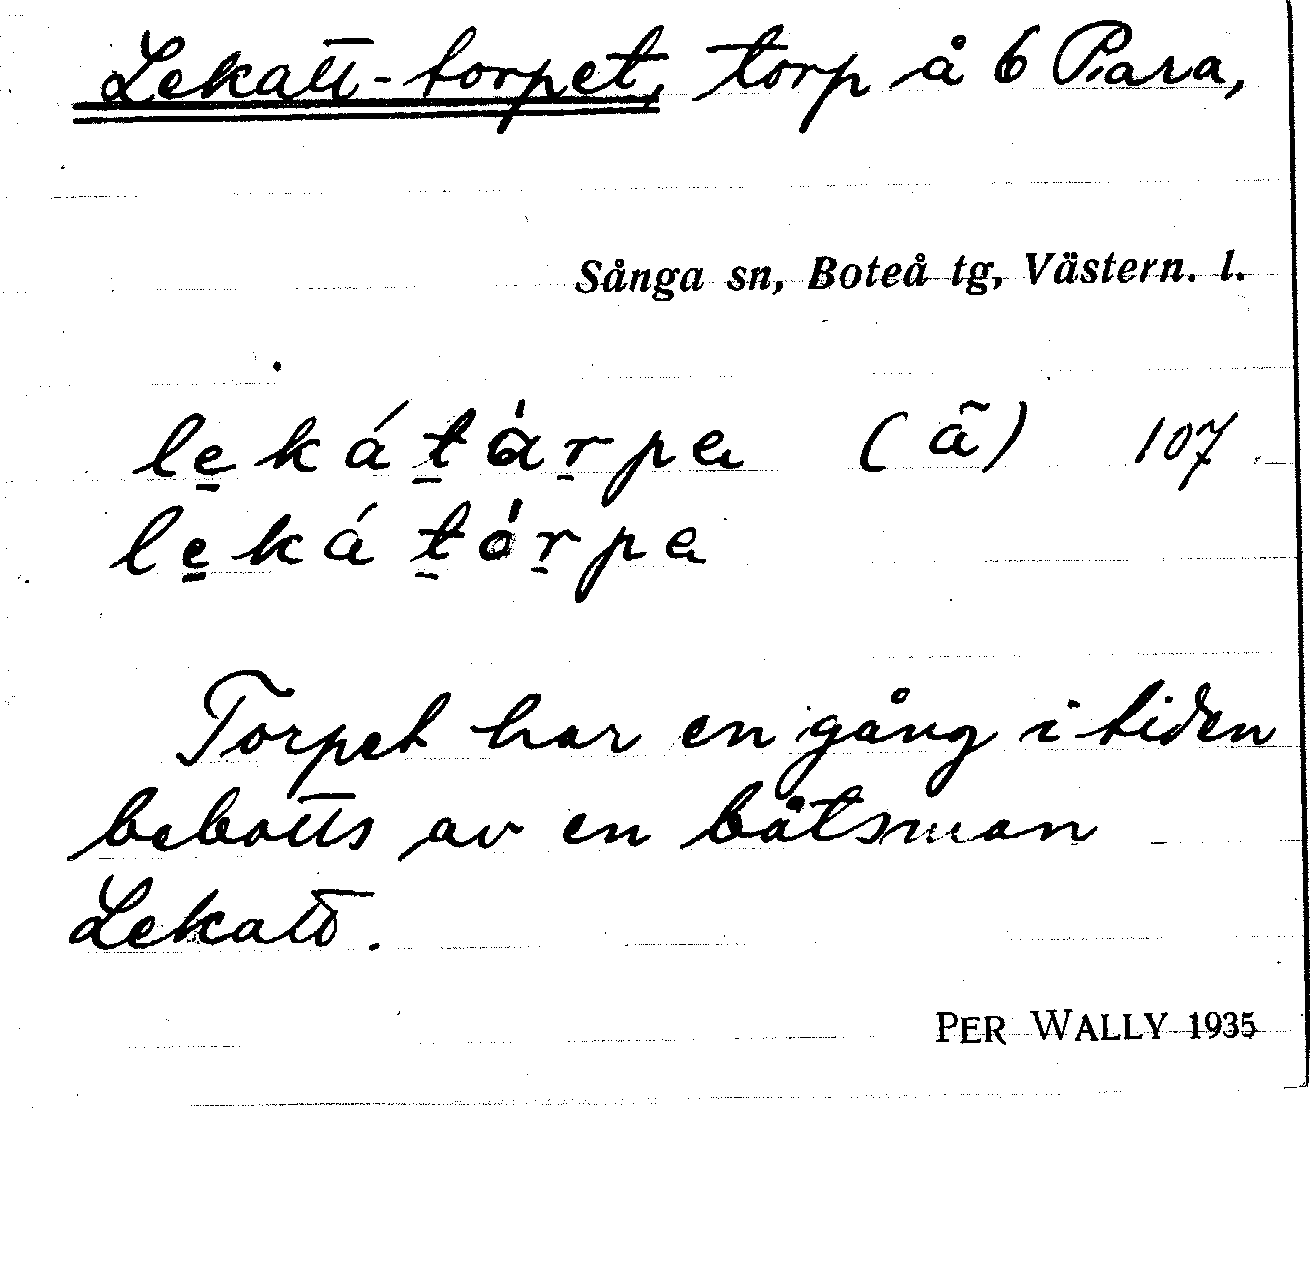 Lekatt-torpet, torp å 6 Para,
Sånga sn, Boteå tg, Västern. l.
le̠kát̠ȧr̠pa (ã) 107
le̠kát̠ȯr̠pa
Torpet har en gång i tiden
bebotts av en båtsman
Lekatt.
PER WALLY 1935